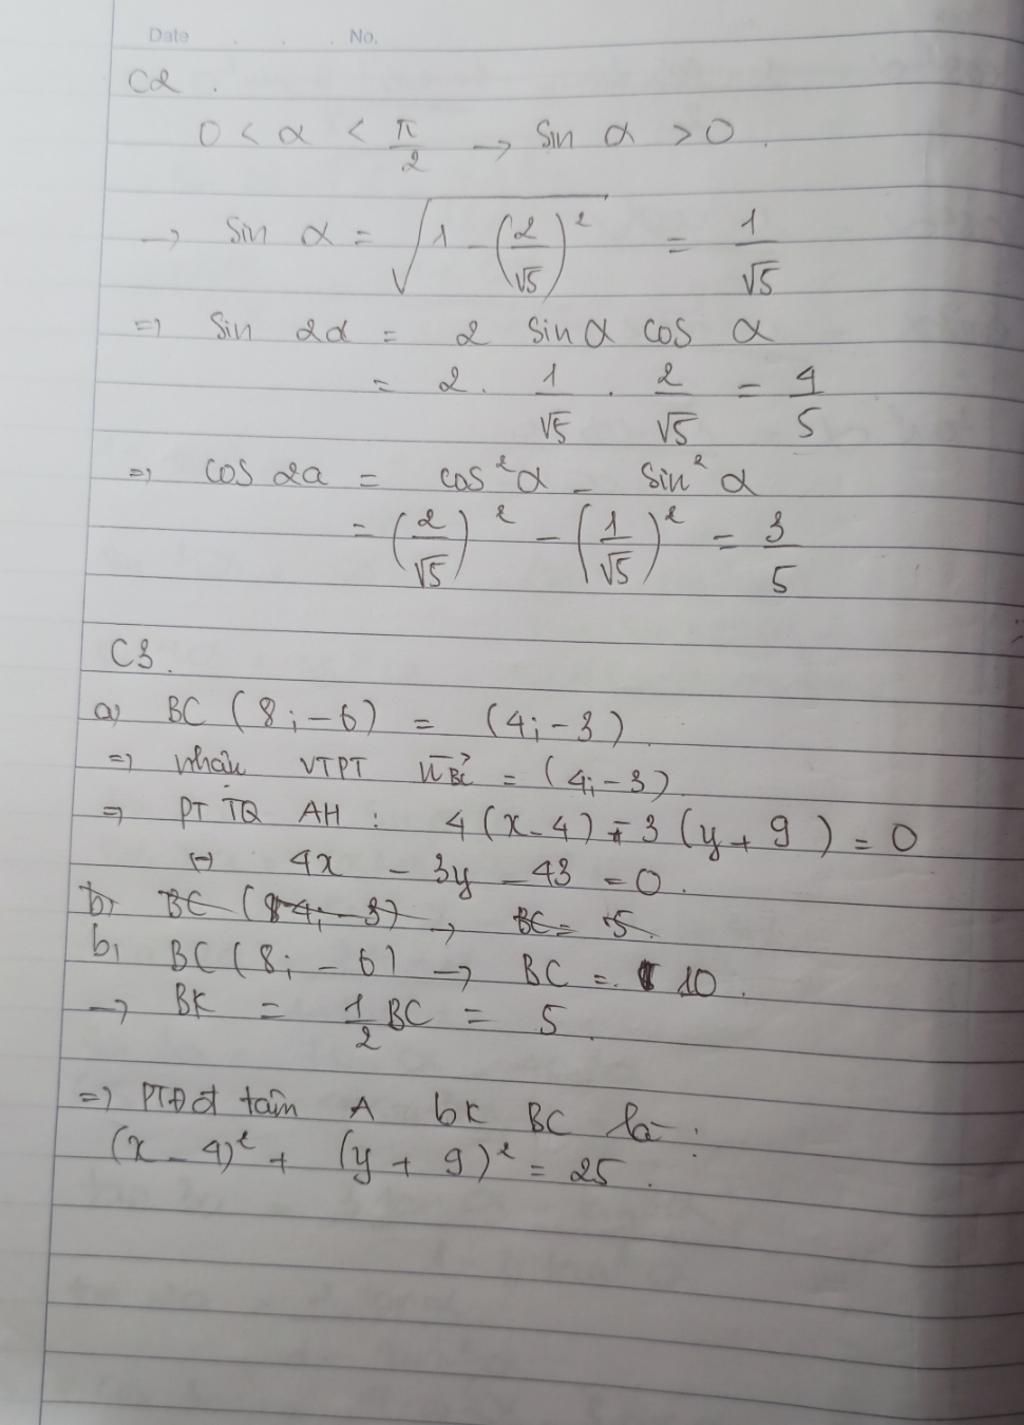 Date . . . No.
C2.
0 < α < π/2 → sin α > 0.
→ sin α = √(1 - (2/√5)²) = 1/√5
=> sin 2α = 2 sin α cos α
= 2 . 1/√5 . 2/√5 = 4/5
=> cos 2a = cos²α - sin²α
= (2/√5)² - (1/√5)² = 3/5
C3.
a) BC (8; -6) = (4; -3)
=> nhận VTPT n⃗BC = (4; -3)
=> PT TQ AH : 4(x - 4) - 3(y + 9) = 0
(=) 4x - 3y - 43 = 0.
b) BC (4; -3) → BC = 5.
b, BC (8; -6) → BC = 10.
→ BK = 1/2 BC = 5.
=> PTĐt tâm A bk BC là :
(x - 4)² + (y + 9)² = 25.